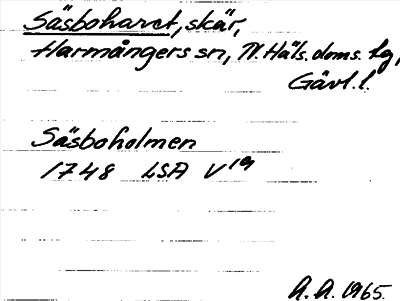 Säsboharet, skär,
Harmångers sn, N. Häls. doms. lg,
Gävl. l.
Säsboholmen
1748 LSA V 19
h. h. 1965.